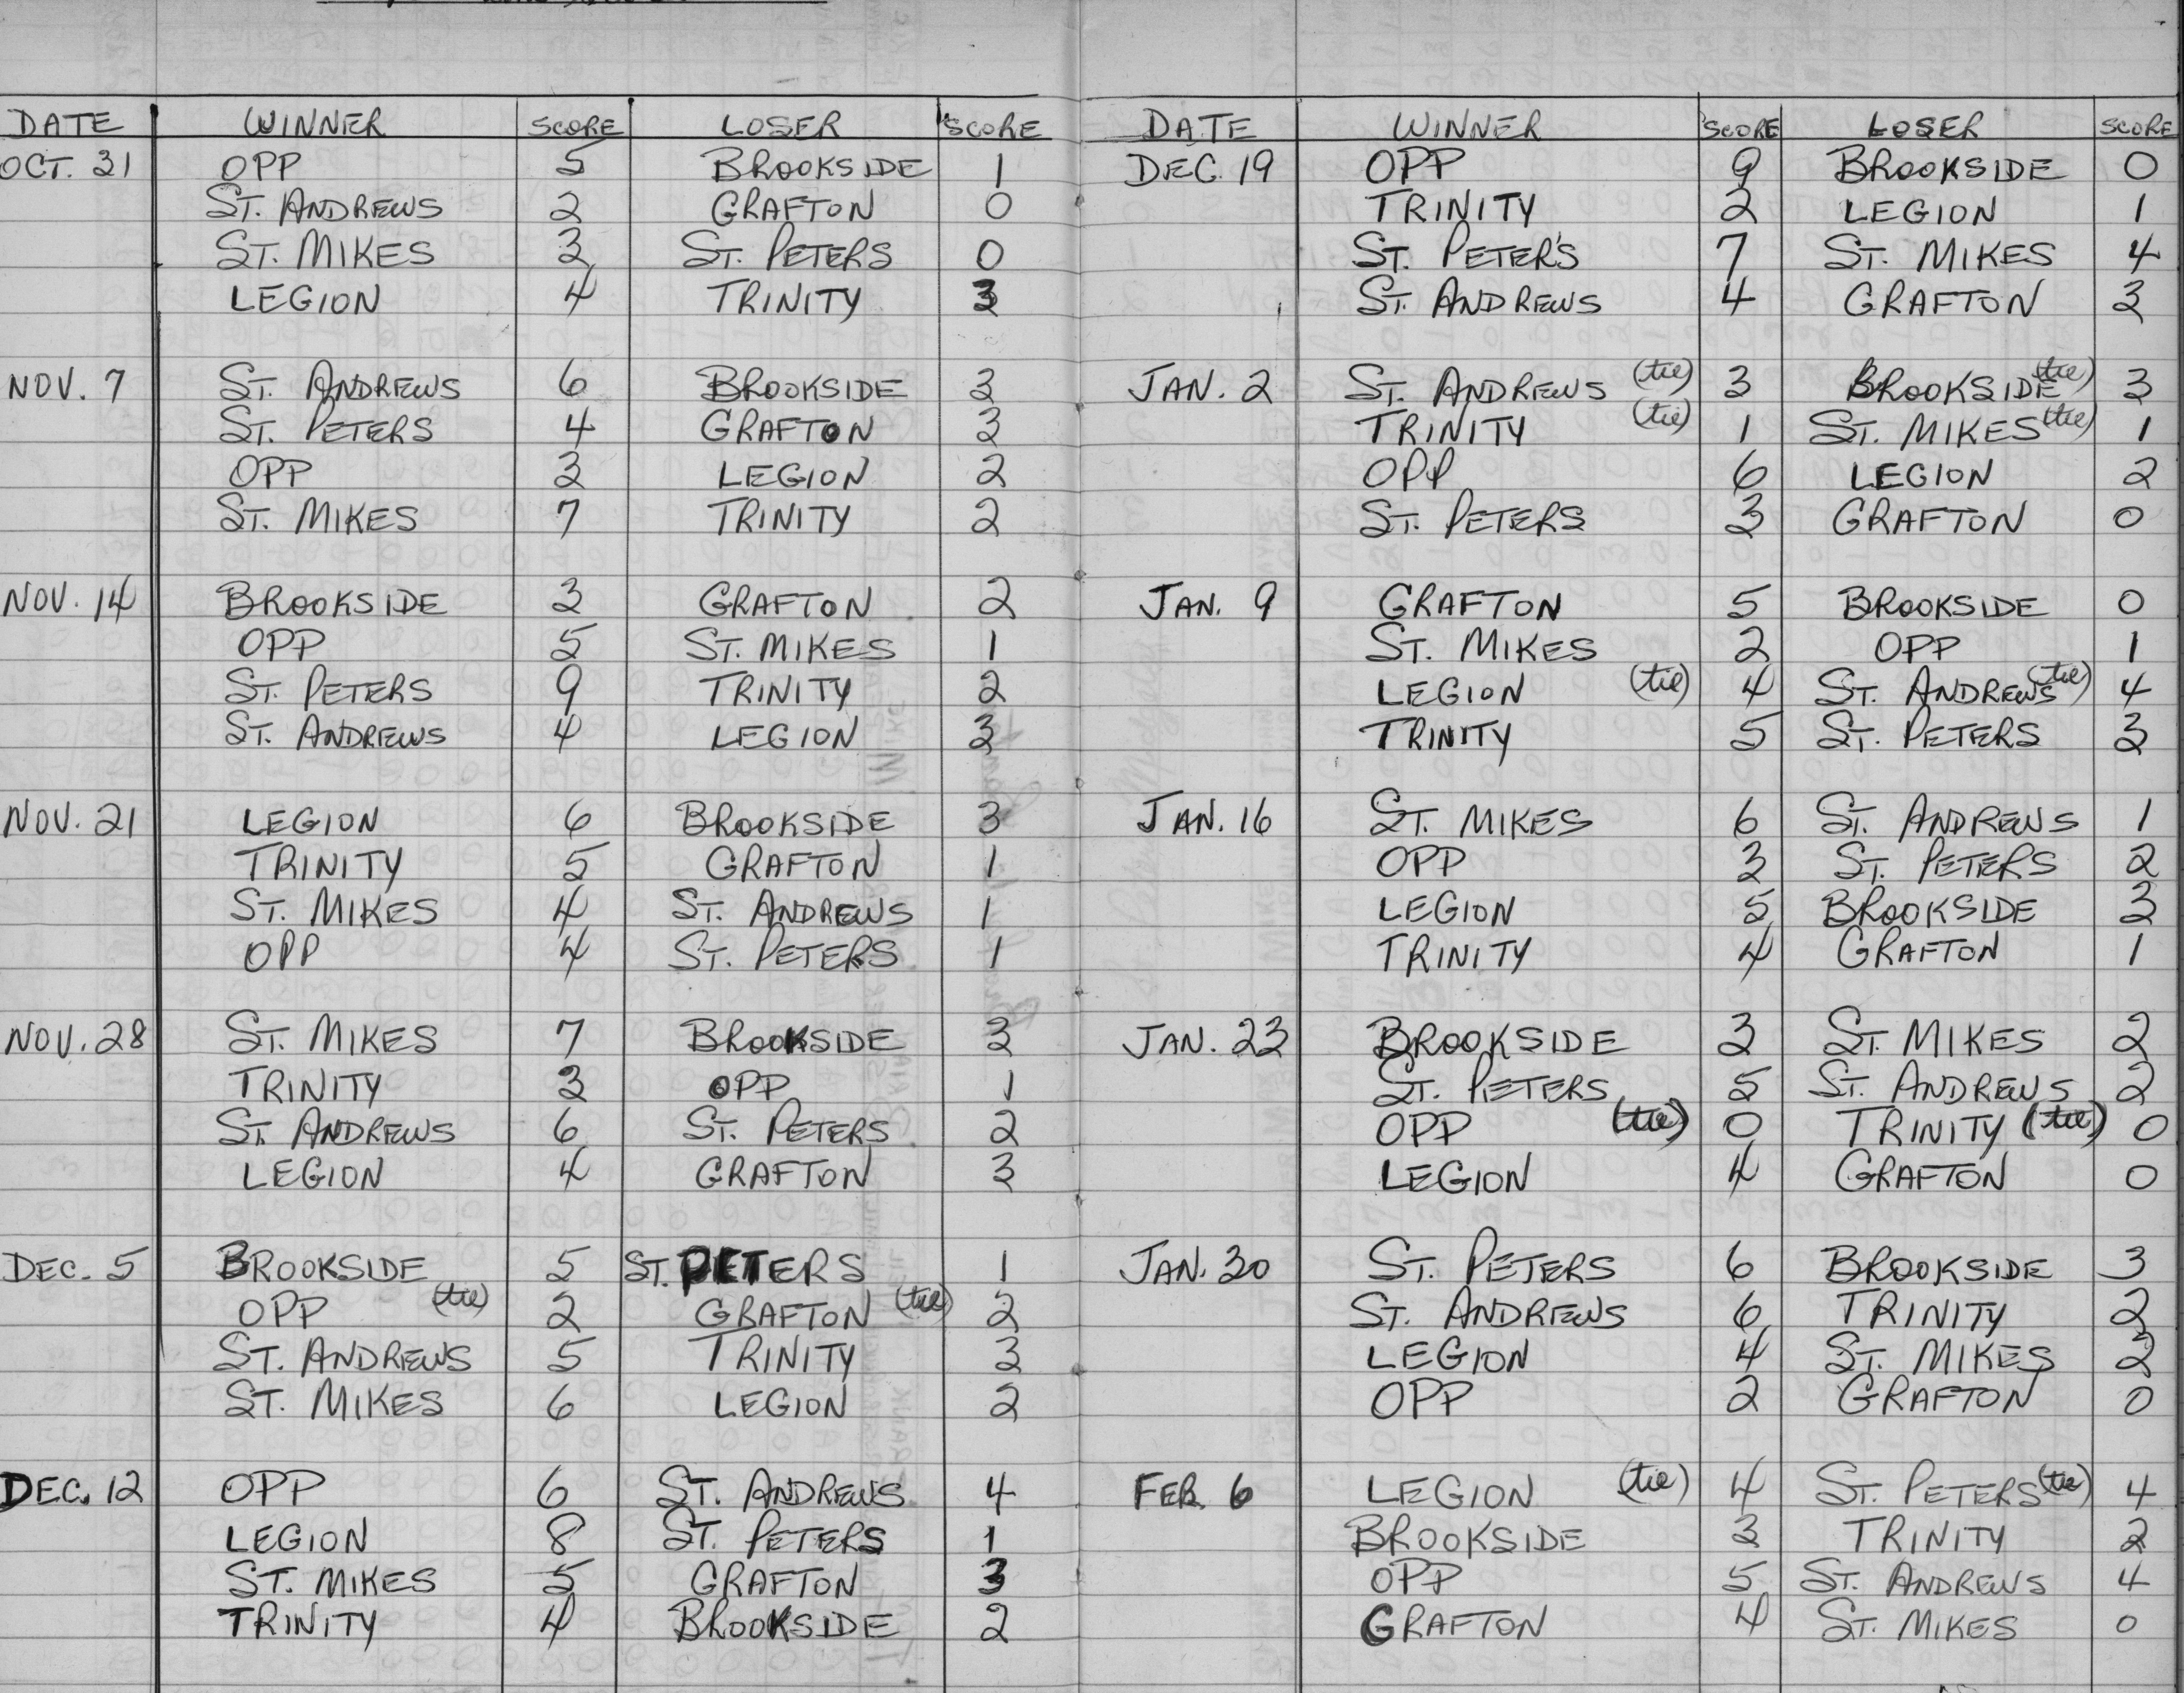 DATE WINNER SCORE LOSER SCORE
OCT. 31 OPP 5 BROOKSIDE 1
ST. ANDREWS 2 GRAFTON 0
ST. MIKES 3 ST. PETERS 0
LEGION 4 TRINITY 3
NOV. 7 ST. ANDREWS 6 BROOKSIDE 3
ST. PETERS 4 GRAFTON 3
OPP 3 LEGION 2
ST. MIKES 7 TRINITY 2
NOV. 14 BROOKSIDE 3 GRAFTON 2
OPP 5 ST. MIKES 1
ST. PETERS 9 TRINITY 2
ST. ANDREWS 4 LEGION 3
NOV. 21 LEGION 6 BROOKSIDE 3
TRINITY 5 GRAFTON 1
ST. MIKES 4 ST. ANDREWS 1
OPP 4 ST. PETERS 1
NOV. 28 ST. MIKES 7 BROOKSIDE 3
TRINITY 3 OPP 1
ST. ANDREWS 6 ST. PETERS 2
LEGION 4 GRAFTON 3
DEC. 5 BROOKSIDE 5 ST. PETERS 1
OPP (tie) 2 GRAFTON (tie) 2
ST. ANDREWS 5 TRINITY 3
ST. MIKES 6 LEGION 2
DEC. 12 OPP 6 ST. ANDREWS 4
LEGION 8 ST. PETERS 1
ST. MIKES 5 GRAFTON 3
TRINITY 4 BROOKSIDE 2
DATE WINNER SCORE LOSER SCORE
DEC. 19 OPP 9 BROOKSIDE 0
TRINITY 2 LEGION 1
ST. PETER'S 7 ST. MIKES 4
ST. ANDREWS 4 GRAFTON 3
JAN. 2 ST. ANDREWS (tie) 3 BROOKSIDE (tie) 3
TRINITY (tie) 1 ST. MIKES (tie) 1
OPP 6 LEGION 2
ST. PETERS 3 GRAFTON 0
JAN. 9 GRAFTON 5 BROOKSIDE 0
ST. MIKES 2 OPP 1
LEGION (tie) 4 ST. ANDREWS (tie) 4
TRINITY 5 ST. PETERS 3
JAN. 16 ST. MIKES 6 ST. ANDREWS 1
OPP 3 ST. PETERS 2
LEGION 5 BROOKSIDE 3
TRINITY 4 GRAFTON 1
JAN. 23 BROOKSIDE 3 ST. MIKES 2
ST. PETERS 5 ST. ANDREWS 2
OPP (tie) 0 TRINITY (tie) 0
LEGION 4 GRAFTON 0
JAN. 30 ST. PETERS 6 BROOKSIDE 3
ST. ANDREWS 6 TRINITY 2
LEGION 4 ST. MIKES 2
OPP 2 GRAFTON 0
FEB. 6 LEGION (tie) 4 ST. PETERS (tie) 4
BROOKSIDE 3 TRINITY 2
OPP 5 ST. ANDREWS 4
GRAFTON 4 ST. MIKES 0